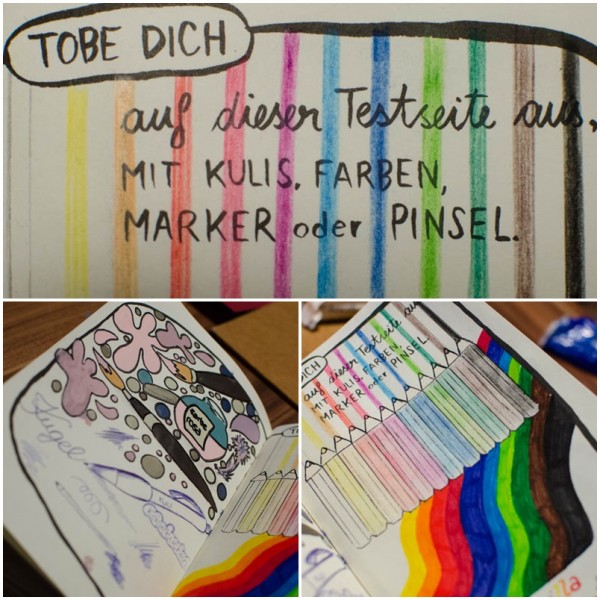 TOBE DICH
auf dieser Testseite aus,
MIT KULIS, FARBEN,
MARKER oder PINSEL.
Kugel
DICH
auf dieser Testseite aus
MIT KULIS, FARBEN,
MARKER oder PINSEL.